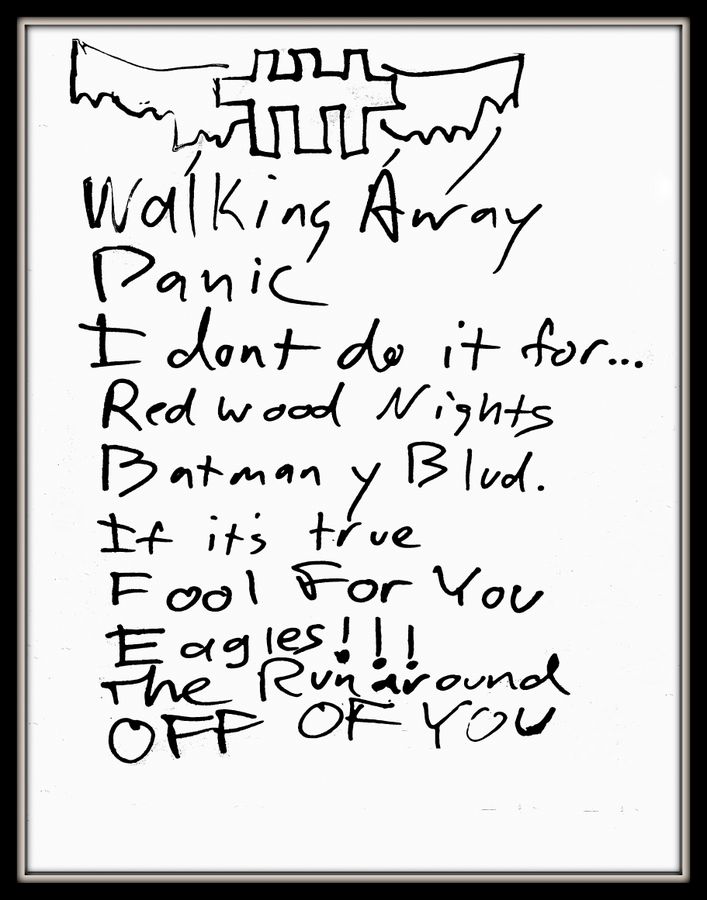 Walking Away
Panic
I dont do it for...
Redwood Nights
Batman y Blvd.
If it's true
Fool For You
Eagles!!!
The Runaround
OFF OF YOU